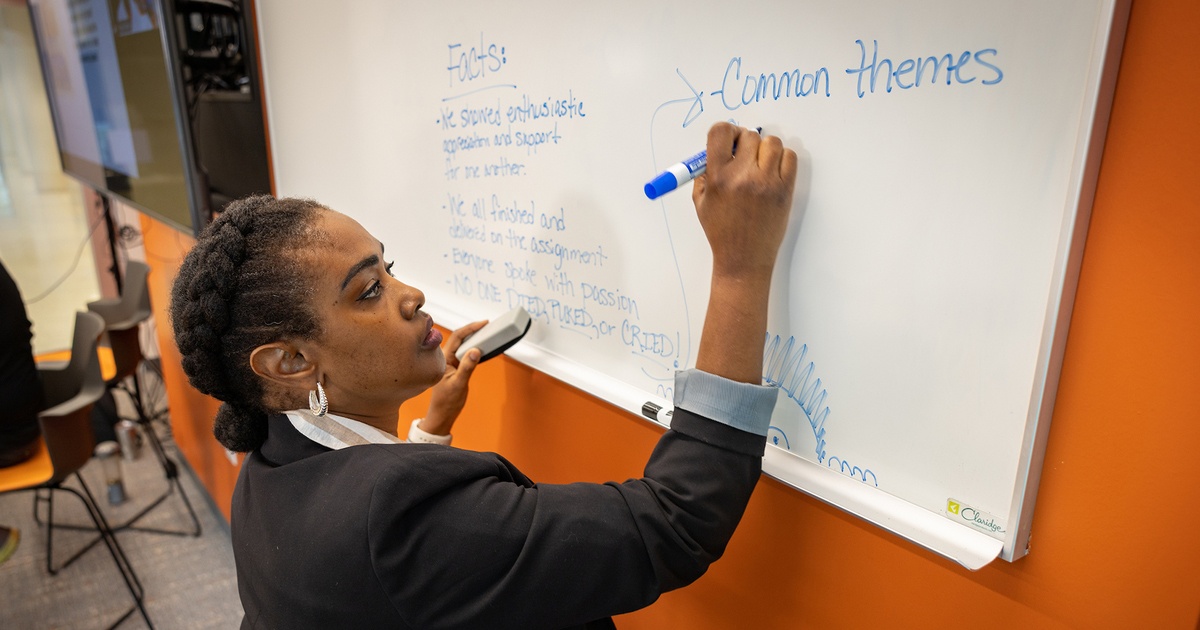 Facts:
-We showed enthusiastic
appreciation and support
for one another.
- We all finished and
delivered on the assignment
- Everyone spoke with passion
- NO ONE DIED, PUKED, or CRIED!
- Common themes
Claridge